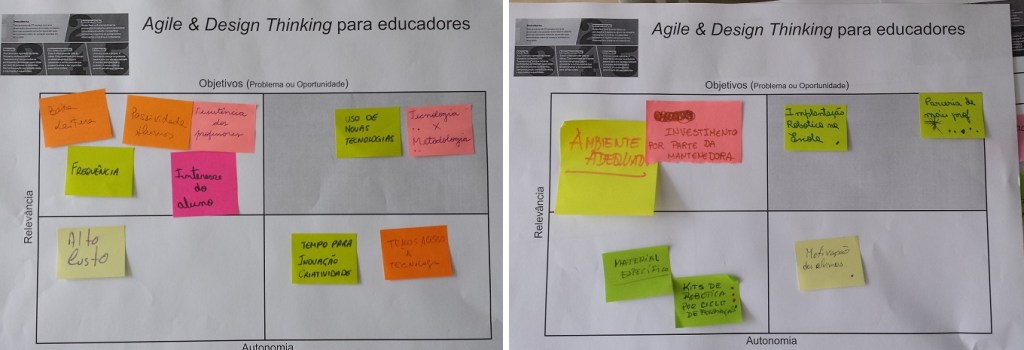 Agile & Design Thinking para educadores
Objetivos (Problema ou Oportunidade)
Relevância
Baixa
Leitura
Passividade
alunos
Resistência
dos
professores
FREQUÊNCIA
Interesse
do
aluno
USO DE
NOVAS
TECNOLOGIAS
Tecnologia
X
Metodologia
Alto
Custo
TEMPO PARA
INOVAÇÃO
CRIATIVIDADE
Autonomia
Agile & Design Thinking para educadores
Objetivos (Problema ou Oportunidade)
Relevância
AMBIENTE
ADEQUADO
INVESTIMENTO
POR PARTE DA
MANTENEDORA
Implantação
Robótica na
Escola
Parceria de
mais prof
MATERIAL
ESPECÍFICO
KITS DE
ROBÓTICA
POR CICLO
DE FORMAÇÃO
Motivação
dos alunos
Autonomia